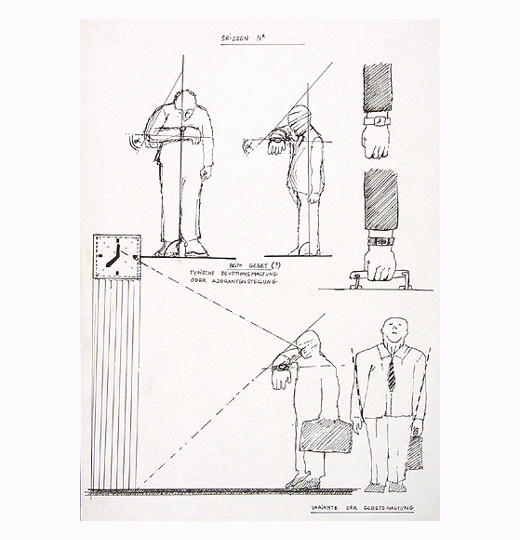 SKIZZEN N⁰
BEIM GEBET (?)
TYPISCHE DEVOTIONSHALTUNG
ODER ADORANTENSTELLUNG
VARIANTE DER GEBETSHALTUNG